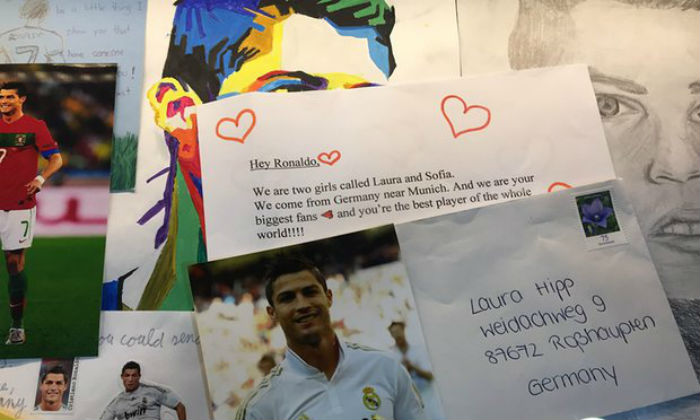 be a little thing I
show you that
have someone
you!
7
Hey Ronaldo,
We are two girls called Laura and Sofia.
We come from Germany near Munich. And we are your
biggest fans and you're the best player of the whole
world!!!!
75
Laura Hipp
Weidachweg 9
87672 Roßhaupten
Germany
7
you could send
bwin